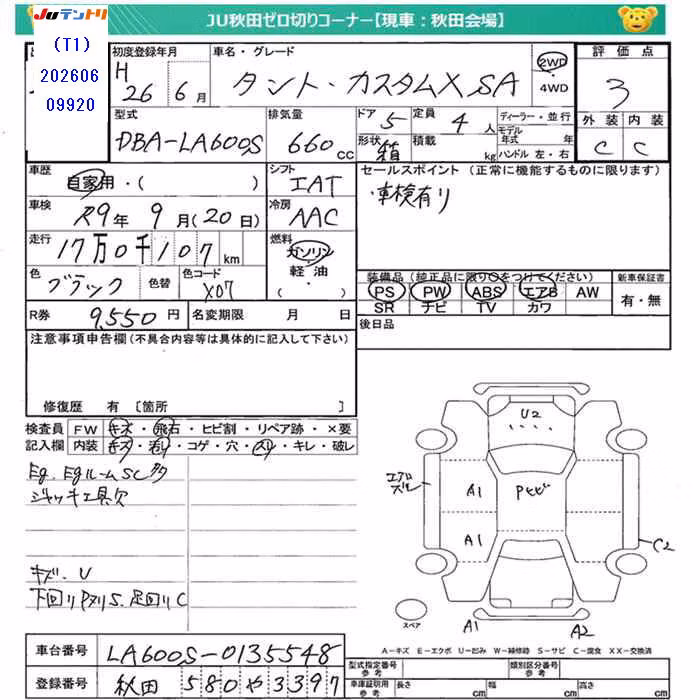 Juテントリ JU秋田ゼロ切りコーナー【現車：秋田会場】
(T1)
202606
09920
初度登録年月 車名・グレード 評価点
H 26 6月 タント・カスタムX SA 2WD 4WD 3
型式 排気量 ドア 定員 ディーラー・並行
DBA-LA600S 660cc 5 4人 モデル年式 年
形状 箱 積載 kg ハンドル 左・右
外装 内装
C C
車歴 自家用・( ) シフト IAT
セールスポイント (正常に機能するものに限ります)
・車検有り
車検 R9年 9月(20日) 冷房 AAC
走行 17万0千107km 燃料 ガソリン
軽・油
・( )
色 ブラック 色替 色コード X07
装備品(純正品に限り○をつけてください) 新車保証書
PS PW ABS エアB AW 有・無
SR ナビ TV カワ
R券 9,550円 名変期限 月 日 後日品
注意事項申告欄(不具合内容等は具体的に記入して下さい)
修復歴 有 〔箇所 〕
検査員 FW キズ・飛石・ヒビ割・リペア跡・×要
記入欄 内装 キズ・汚れ・コゲ・穴・スリ・キレ・破レ
Eg. Egルーム SC多
ジャッキ工具欠
キズ. U
下回りPヌリS. 足回りC
U2
エアロズレ
A1
Pヒビ
A1
C2
スペア
A1 A2
A－キズ E－エクボ U－凹み W－補修跡 S－サビ C－腐食 XX－交換済
車台番号 LA600S-0135548
登録番号 秋田 580 や 3397
型式指定番号 参考 類別区分番号 参考
車庫証明用 参考 長さ cm 幅 cm 高さ cm